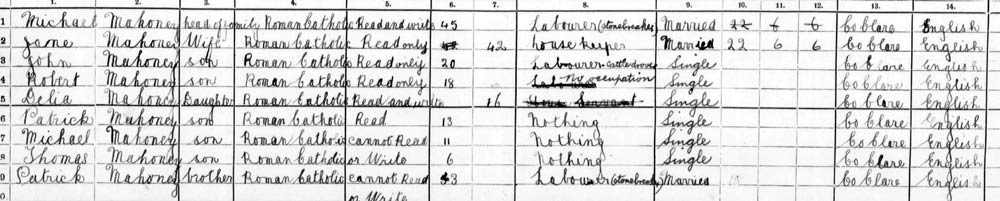 1. 2. 3. 4. 5. 6. 7. 8. 9. 10. 11. 12. 13. 14.
1 Michael Mahoney head of family Roman Catholic Read and write 45 Labourer (stonebreaker) Married 22 6 6 Co Clare English
2 Jane Mahoney Wife Roman Catholic Read only 42 42 house keeper Married 22 6 6 Co Clare English
3 John Mahoney son Roman Catholic Read only 20 Labourer cattle drover Single Co Clare English
4 Robert Mahoney son Roman Catholic Read only 18 Labourer no occupation Single Co Clare English
5 Delia Mahoney Daughter Roman Catholic Read and write 16 House Servant Single Co Clare English
6 Patrick Mahoney son Roman Catholic Read 13 Nothing Single Co Clare English
7 Michael Mahoney son Roman Catholic cannot Read 11 Nothing Single Co Clare English
8 Thomas Mahoney son Roman Catholic or Write 6 Nothing Single Co Clare English
9 Patrick Mahoney brother Roman Catholic cannot Read 43 Labourer (stonebreaker) Married Co Clare English
0 or Write